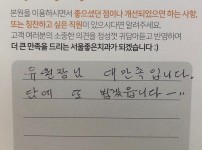 본원을 이용하시면서 좋으셨던 점이나 개선되었으면 하는 사항,
또는 칭찬하고 싶은 직원이 있으시다면 알려주세요.
고객 여러분의 소중한 의견을 정성껏 귀담아듣고 반영하여
더 큰 만족을 드리는 서울좋은치과가 되겠습니다 :)
유원장님 대만족입니다.
담에 또 뵙겠읍니다~"